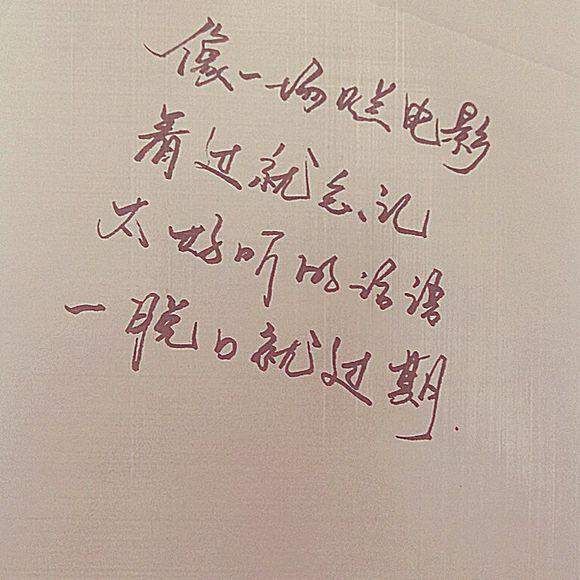 像一场默电影
看过就忘记
太好听的话语
一脱口就过期.